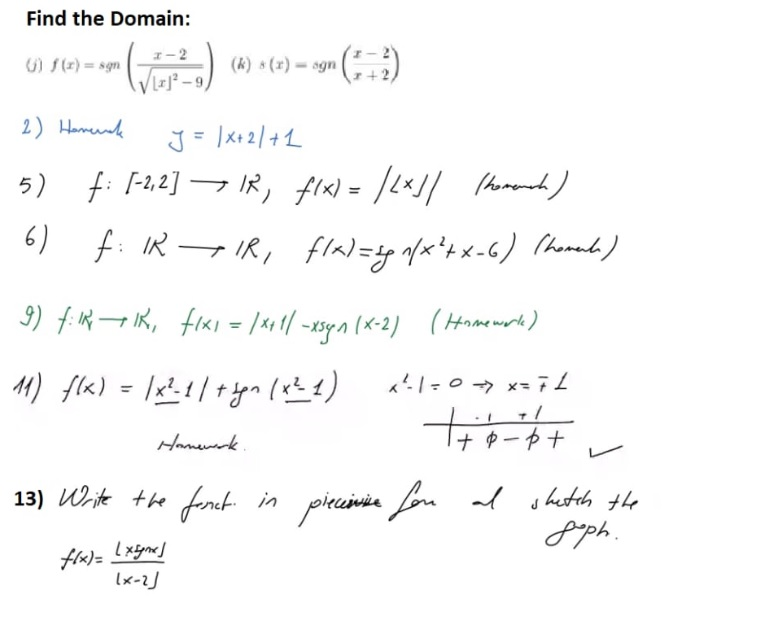 Find the Domain:
(j) f(x) = sgn ( x − 2 / √(⌊x⌋² − 9) ) (k) s(x) = sgn ( x − 2 / x + 2 )
2) Homework y = |x+2|+1
5) f: [-2,2] → IR, f(x) = |⌊x⌋| (homework)
6) f: IR → IR, f(x) = sgn(x²+x-6) (homework)
9) f: IR → IR, f(x) = |x+1| -xsgn(x-2) (Homework)
11) f(x) = |x²-1| + sgn(x²-1) x²-1=0 → x= ∓1
-1 +1
+ φ - φ +
Homework.
13) Write the funct. in piecewise form and sketch the
graph.
f(x)= ⌊xsgnx⌋ / ⌊x-2⌋